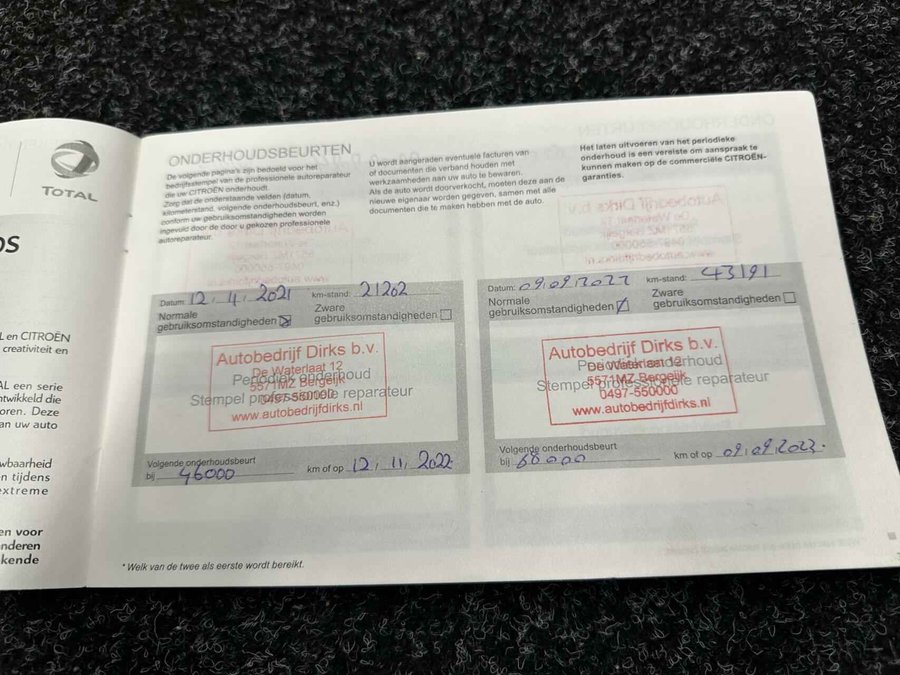 TOTAL
OS
L en CITROËN
creativiteit en
AL een serie
ntwikkeld die
oren. Deze
an uw auto
wbaarheid
n tijdens
extreme
en voor
nderen
kende
ONDERHOUDSBEURTEN
De volgende pagina's zijn bedoeld voor het
bedrijfsstempel van de professionele autoreparateur
die uw CITROËN onderhoudt.
Zorg dat de onderstaande velden (datum,
kilometerstand, volgende onderhoudsbeurt, enz.)
conform uw gebruiksomstandigheden worden
ingevuld door de door u gekozen professionele
autoreparateur.
U wordt aangeraden eventuele facturen van
of documenten die verband houden met
werkzaamheden aan uw auto te bewaren.
Als de auto wordt doorverkocht, moeten deze aan de
nieuwe eigenaar worden gegeven, samen met alle
documenten die te maken hebben met de auto.
Het laten uitvoeren van het periodieke
onderhoud is een vereiste om aanspraak te
kunnen maken op de commerciële CITROËN-
garanties.
Datum: 12, 11, 2021 km-stand: 21202
Normale
gebruiksomstandigheden
Zware
gebruiksomstandigheden
Autobedrijf Dirks b.v.
De Waterlaat 12
Periodiek onderhoud
5571MZ Bergeijk
Stempel professionele reparateur
0497-550000
www.autobedrijfdirks.nl
Volgende onderhoudsbeurt
bij 46000 km of op 12, 11, 2022
Datum: 09.09.2022 km-stand: 43191
Normale
gebruiksomstandigheden
Zware
gebruiksomstandigheden
Autobedrijf Dirks b.v.
De Waterlaat 12
Periodiek onderhoud
5571MZ Bergeijk
Stempel professionele reparateur
0497-550000
www.autobedrijfdirks.nl
Volgende onderhoudsbeurt
bij 68000 km of op 09.09.2023.
* Welk van de twee als eerste wordt bereikt.